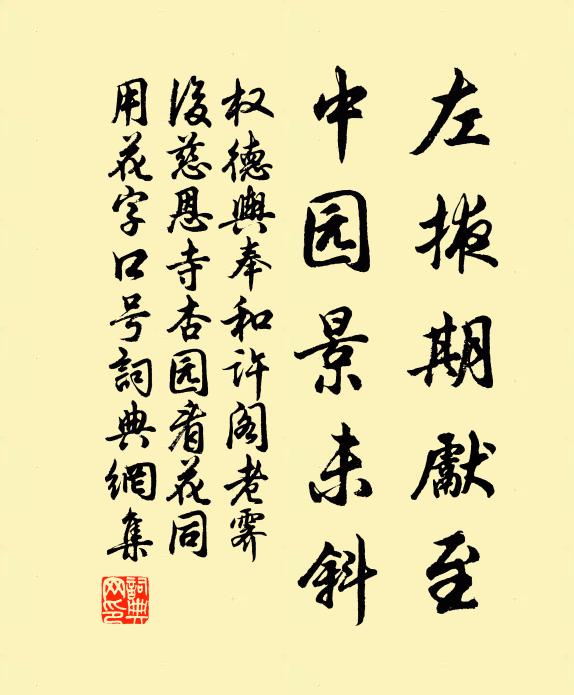 左掖期獻至
中园景未斜
权德舆奉和许阁老霁
後慈恩寺杏园看花同
用花字口号詞典網集
詞典網印